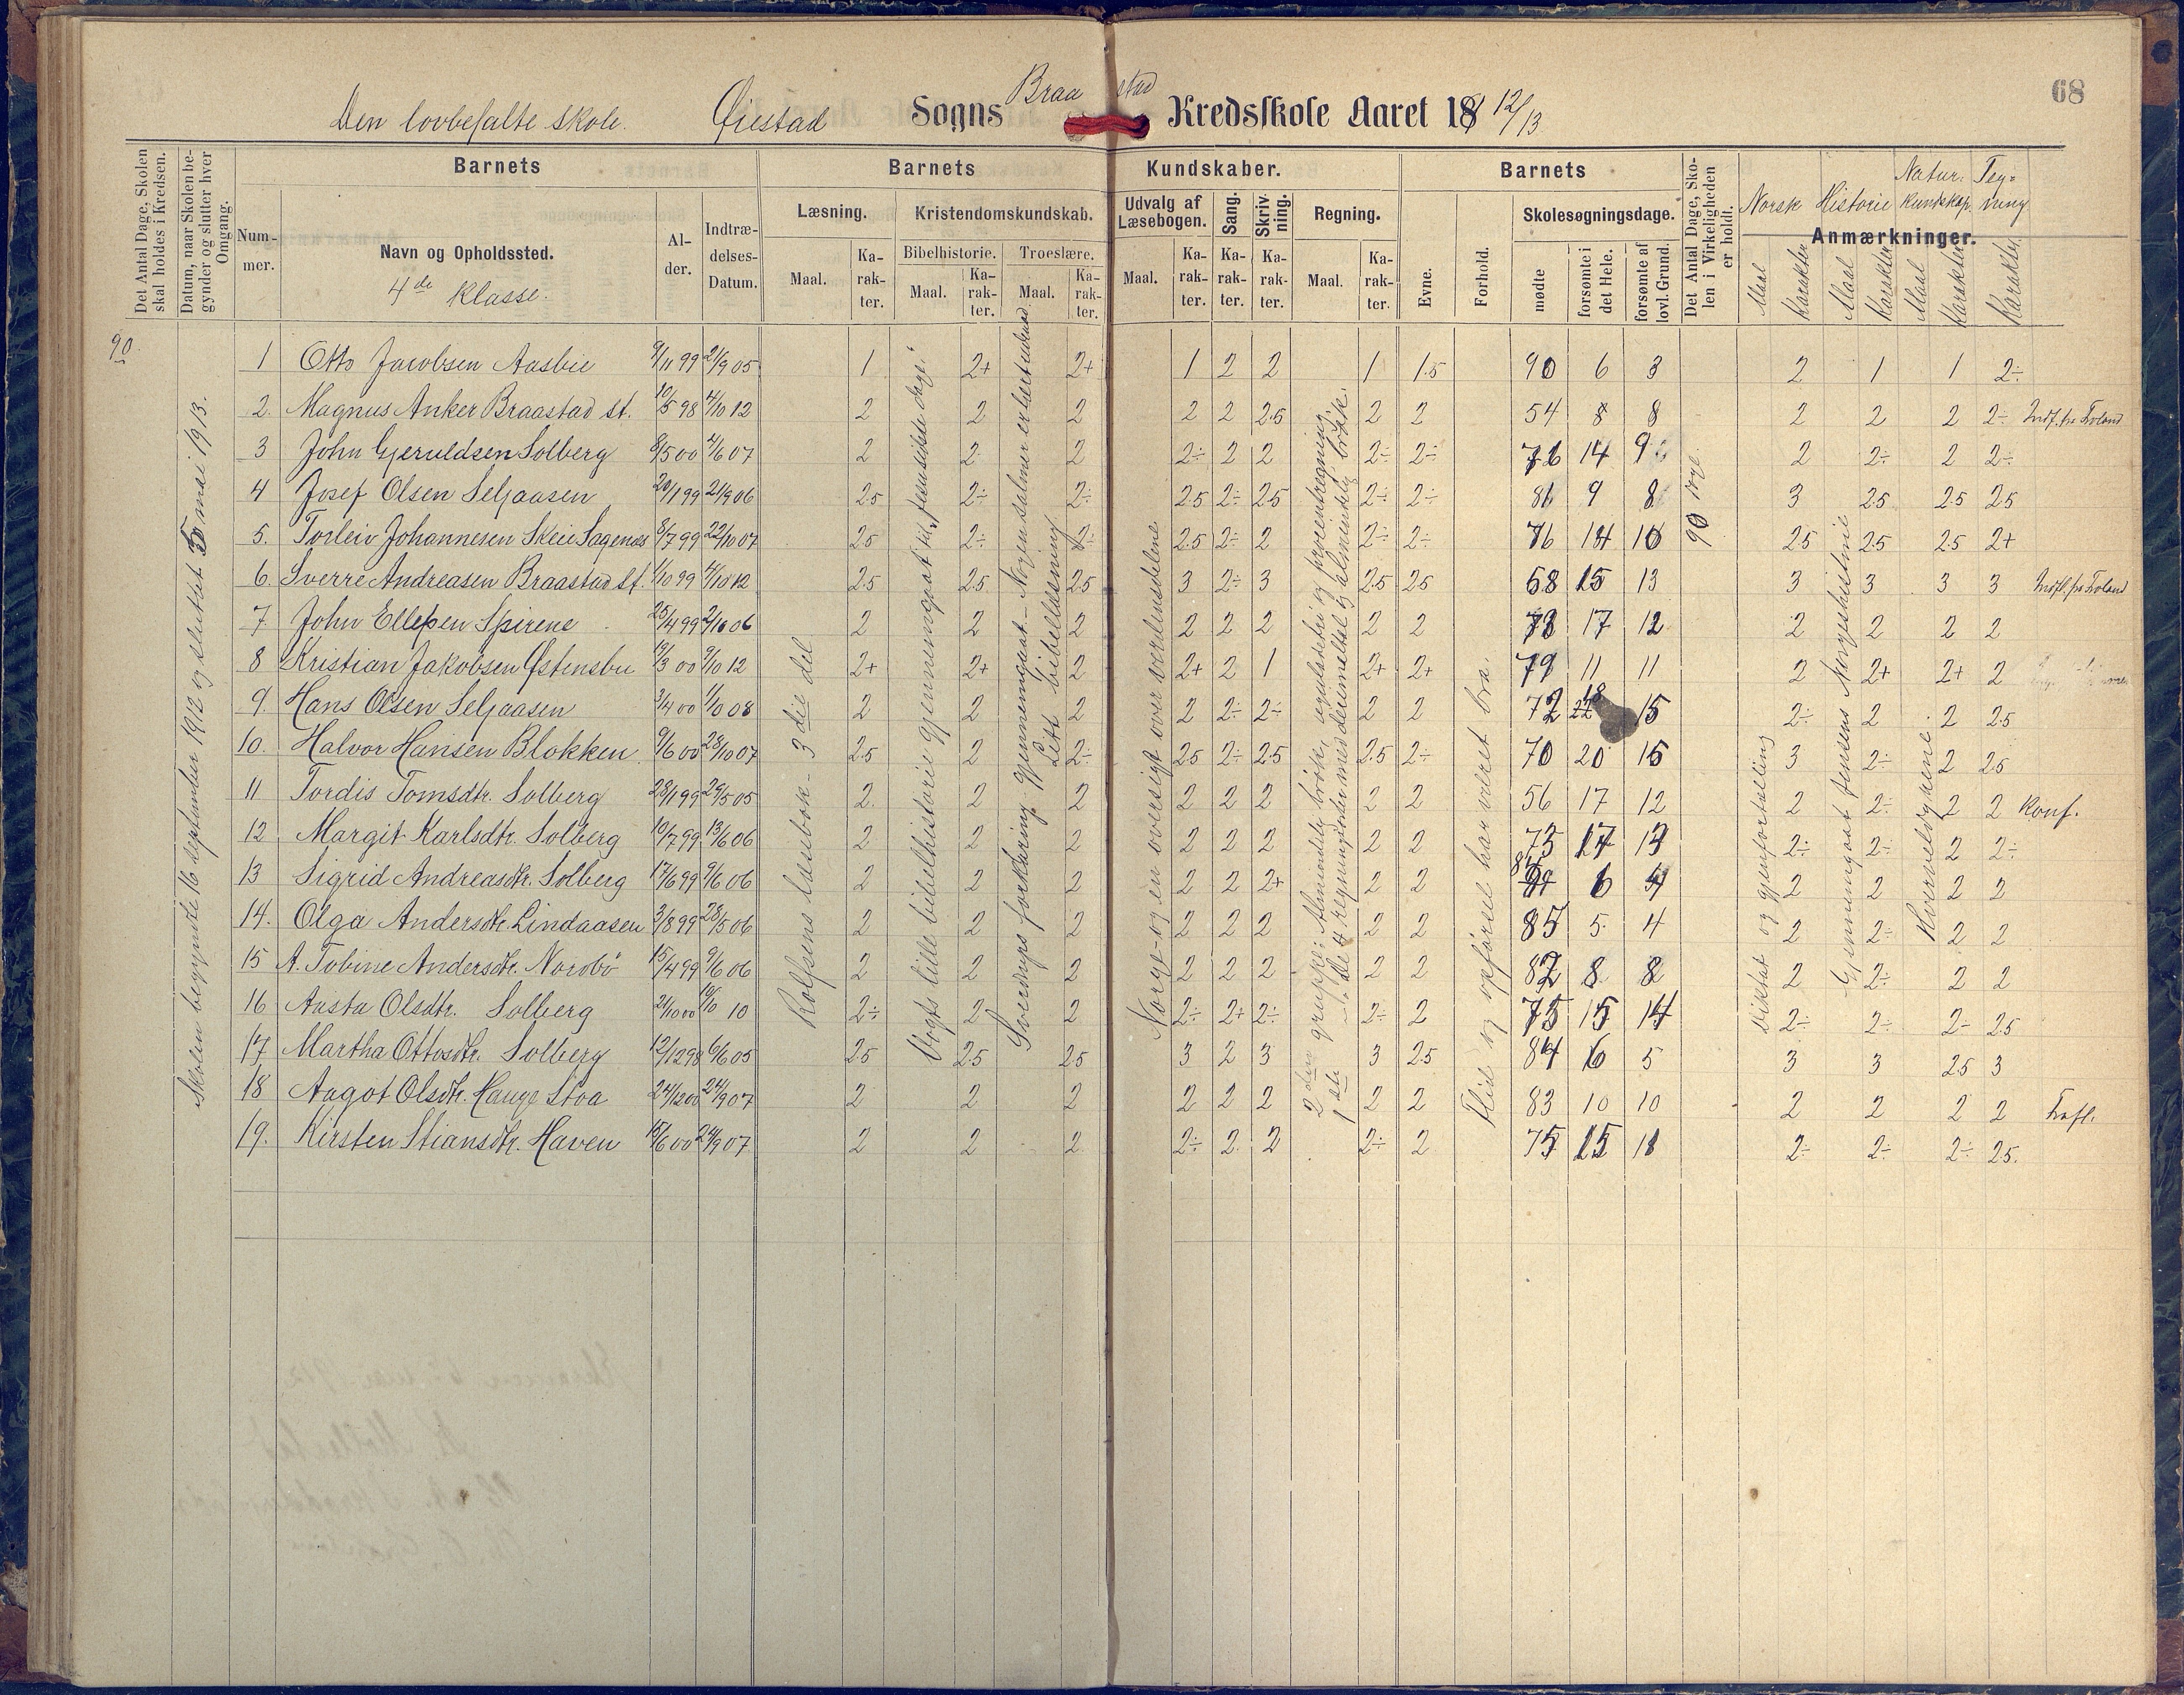 68
Den lovbefalte skole. Øiestad Sogns Braastad Kredsskole Aaret 18 12/13
Det Antal Dage, Skolen skal holdes i Kredsen.
Datum, naar Skolen begynder og slutter hver Omgang.
Barnets
Barnets Kundskaber.
Barnets
Nummer.
Navn og Opholdssted.
4de Klasse.
Alder.
Indtrædelses-Datum.
Læsning.
Maal. Karakter.
Kristendomskundskab.
Bibelhistorie. Troeslære.
Maal. Karakter. Maal. Karakter.
Udvalg af Læsebogen.
Maal. Karakter.
Sang. Karakter.
Skrivning. Karakter.
Regning.
Maal. Karakter.
Evne.
Forhold.
Skolesøgningsdage.
mødte
forsømte i det Hele.
forsømte af lovl. Grund.
Det Antal Dage, Skolen i Virkeligheden er holdt.
Anmærkninger.
Norsk Historie Naturkundskap. Tegning
Maal Karakter Maal Karakter Maal Karakter Karakter
90
Skolen begyndte 16 september 1912 og sluttet 5 mai 1913.
Rolfsens læsebok - 3die del
Vogts lille bibelhistorie gjennemgaat til
Sverdrups forklaring gjennemgaat - Nogen salmer er lært utenad
Litt bibellæsning
Norge - og en oversigt over verdensdelene
2den gruppe: Almindelig brøk,
1ste " : De 4 regningsarter med decimaltal og almindelig brøk.
Flid og opførsel har været bra.
90
Diktat og gjenfortælling
Gjennemgaat Jensens Norgeshistorie
1 Otto Jacobsen Aasbie 9/11 99 21/9 05 1 2+ 2+ 1 2 2 1 1.5 90 6 3 2 1 1 2÷
2. Magnus Anker Braastad st. 10/5 98 4/10 12 2 2 2 2 2 2.5 2 2 54 8 8 2 2 2 2÷ Indf. fra Froland
3 John Gjeruldsen Solberg 8/5 00 4/6 07 2 2 2 2÷ 2 2 2÷ 2÷ 76 14 9 2 2÷ 2 2÷
4 Josef Olsen Seljaasen 20/1 99 21/9 06 2.5 2÷ 2÷ 2.5 2÷ 2.5 2÷ 2÷ 81 9 8 3 2.5 2.5 2.5
5. Torleiv Johannesen Skeie Sagenes 8/7 99 22/10 07 2.5 2÷ 2÷ 2.5 2÷ 2 2÷ 2÷ 76 14 10 2.5 2.5 2.5 2+
6. Sverre Andreasen Braastad st. 1/10 99 4/10 12 2.5 2.5 2.5 3 2÷ 3 2.5 2.5 68 15 13 3 3 3 3 Indfl. fra Froland
7 John Ellefsen Spirene 25/4 99 2/10 06 2 2 2 2 2 2 2 2 73 17 12 2 2 2 2
8 Kristian Jakobsen Østensbu 19/3 00 9/10 12 2+ 2+ 2 2+ 2 1 2+ 2+ 79 11 11 2 2+ 2+ 2
9. Hans Olsen Seljaasen 3/4 00 1/10 08 2 2 2 2 2÷ 2÷ 2 2 72 18 15 2÷ 2 2 2.5
10. Halvor Hansen Blokken 9/6 00 28/10 07 2.5 2 2÷ 2.5 2÷ 2.5 2.5 2÷ 70 20 15 3 2÷ 2 2.5
11 Tordis Tomsdtr. Solberg 28/1 99 29/5 05 2 2 2 2 2 2 2 2 56 17 12 2 2÷ 2 2 Konf.
12 Margit Karlsdtr. Solberg 10/7 99 13/6 06 2 2 2 2 2 2 2 2 73 17 13 2÷ 2÷ 2 2÷
13 Sigrid Andreasdtr. Solberg 17/6 99 9/6 06 2 2 2 2 2 2+ 2 2 84 6 4 2 2 2 2
14. Olga Andersdtr. Lindaasen 3/8 99 28/5 06 2 2 2 2 2 2 2 2 85 5 4 2 2÷ 2 2
15 A. Tobine Andersdtr. Norsbø 15/4 99 9/6 06 2 2 2 2 2 2 2 2 82 8 8 2 2÷ 2 2
16 Aasta Olsdtr. Solberg 2/10 00 10/10 10 2÷ 2 2 2÷ 2+ 2÷ 2÷ 2 75 15 14 2÷ 2÷ 2÷ 2.5
17 Martha Ottosdtr. Solberg 12/12 98 6/6 05 2.5 2.5 2.5 3 2 3 3 2.5 84 6 5 3 3 2.5 3
18 Aagot Olsdtr. Hauge Stoa 24/12 00 24/9 07 2 2 2 2 2 2 2 2 83 10 10 2 2 2 2 Frafl.
19. Kirsten Stiansdtr. Haven 15/6 00 24/9 07 2 2 2 2÷ 2 2 2÷ 2 75 15 11 2÷ 2÷ 2÷ 2.5.